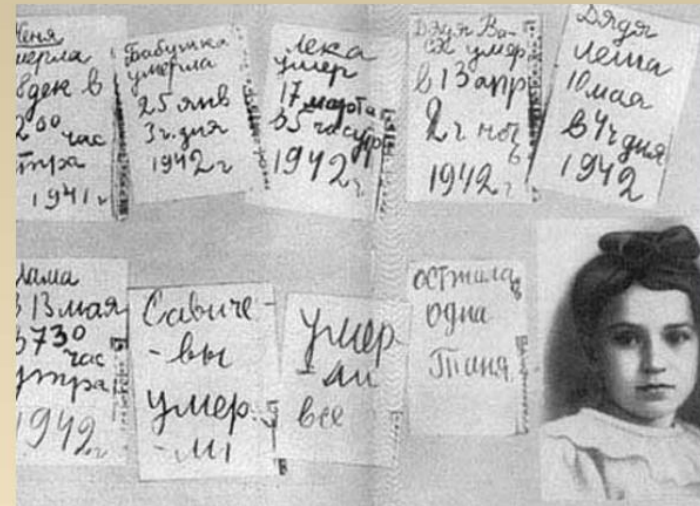 Женя
умерла
28 дек в
1200 час
утра
1941 г
Бабушка
умерла
25 янв
3 ч. дня
1942 г
Лека
умер
17 марта
в 5 час утр
1942 г.
Дядя Ва-
ся умер
в 13 апр
2 ч ноч
1942 г
Дядя
Леша
10 мая
в 4 ч дня
1942
Мама
в 13 мая
в 730
час
утра
1942 г
Савиче-
-вы
умер
-ли
умер
-ли
все
осталась
одна
Таня